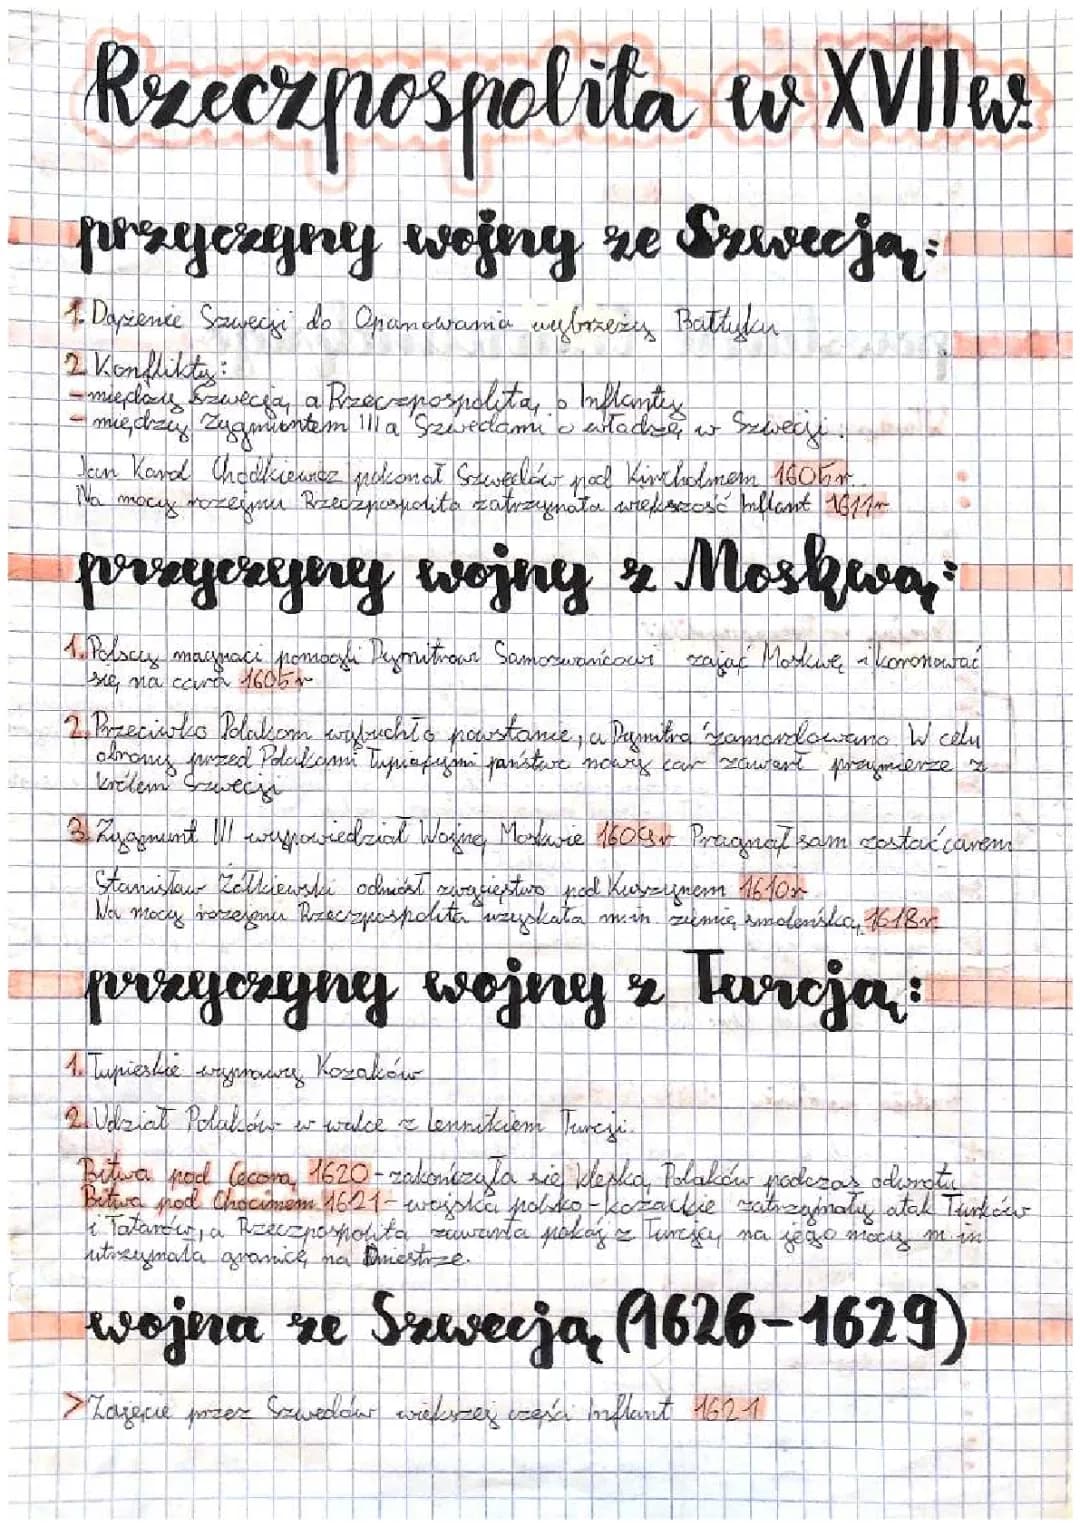 Rzeczpospolita w XVII w.
przyczyny wojny ze Szwecją:
1. Dążenie Szwecji do Opanowania wybrzeży Bałtyku
2. Konflikty:
- między Szwecją a Rzeczpospolitą o Inflanty
- między Zygmuntem III a Szwedami o władzę w Szwecji.
Jan Karol Chodkiewicz pokonał Szwedów pod Kircholmem 1605r.
Na mocy rozejmu Rzeczpospolita zatrzymała większość Inflant 1611r
przyczyny wojny z Moskwą:
1. Polscy magnaci pomogli Dymitrowi Samozwańcowi zająć Moskwę i koronować
się na cara 1605r
2. Przeciwko Polakom wybuchło powstanie, a Dymitra zamordowano. W celu
obrony przed Polakami łupiącymi państwo nowy car zawarł przymierze z
królem Szwecji
3. Zygmunt III wypowiedział Wojnę Moskwie 1609r Pragnął sam zostać carem
Stanisław Żółkiewski odniósł zwycięstwo pod Kuszynem 1610r
Na mocy rozejmu Rzeczpospolita uzyskała m.in. ziemię smoleńską 1618r.
przyczyny wojny z Turcją:
1. Łupieskie wyprawy Kozaków
2. Udział Polaków w walce z lennikiem Turcji.
Bitwa pod Cecorą 1620 - zakończyła się klęską Polaków podczas odwrotu
Bitwa pod Chocimem 1621 - wojska polsko-kozackie zatrzymały atak Turków
i Tatarów, a Rzeczpospolita zawarła pokój z Turcją, na jego mocy m.in
utrzymała granicę na Dniestrze.
wojna ze Szwecją (1626-1629)
> Zajęcie przez Szwedów większej części Inflant 1621